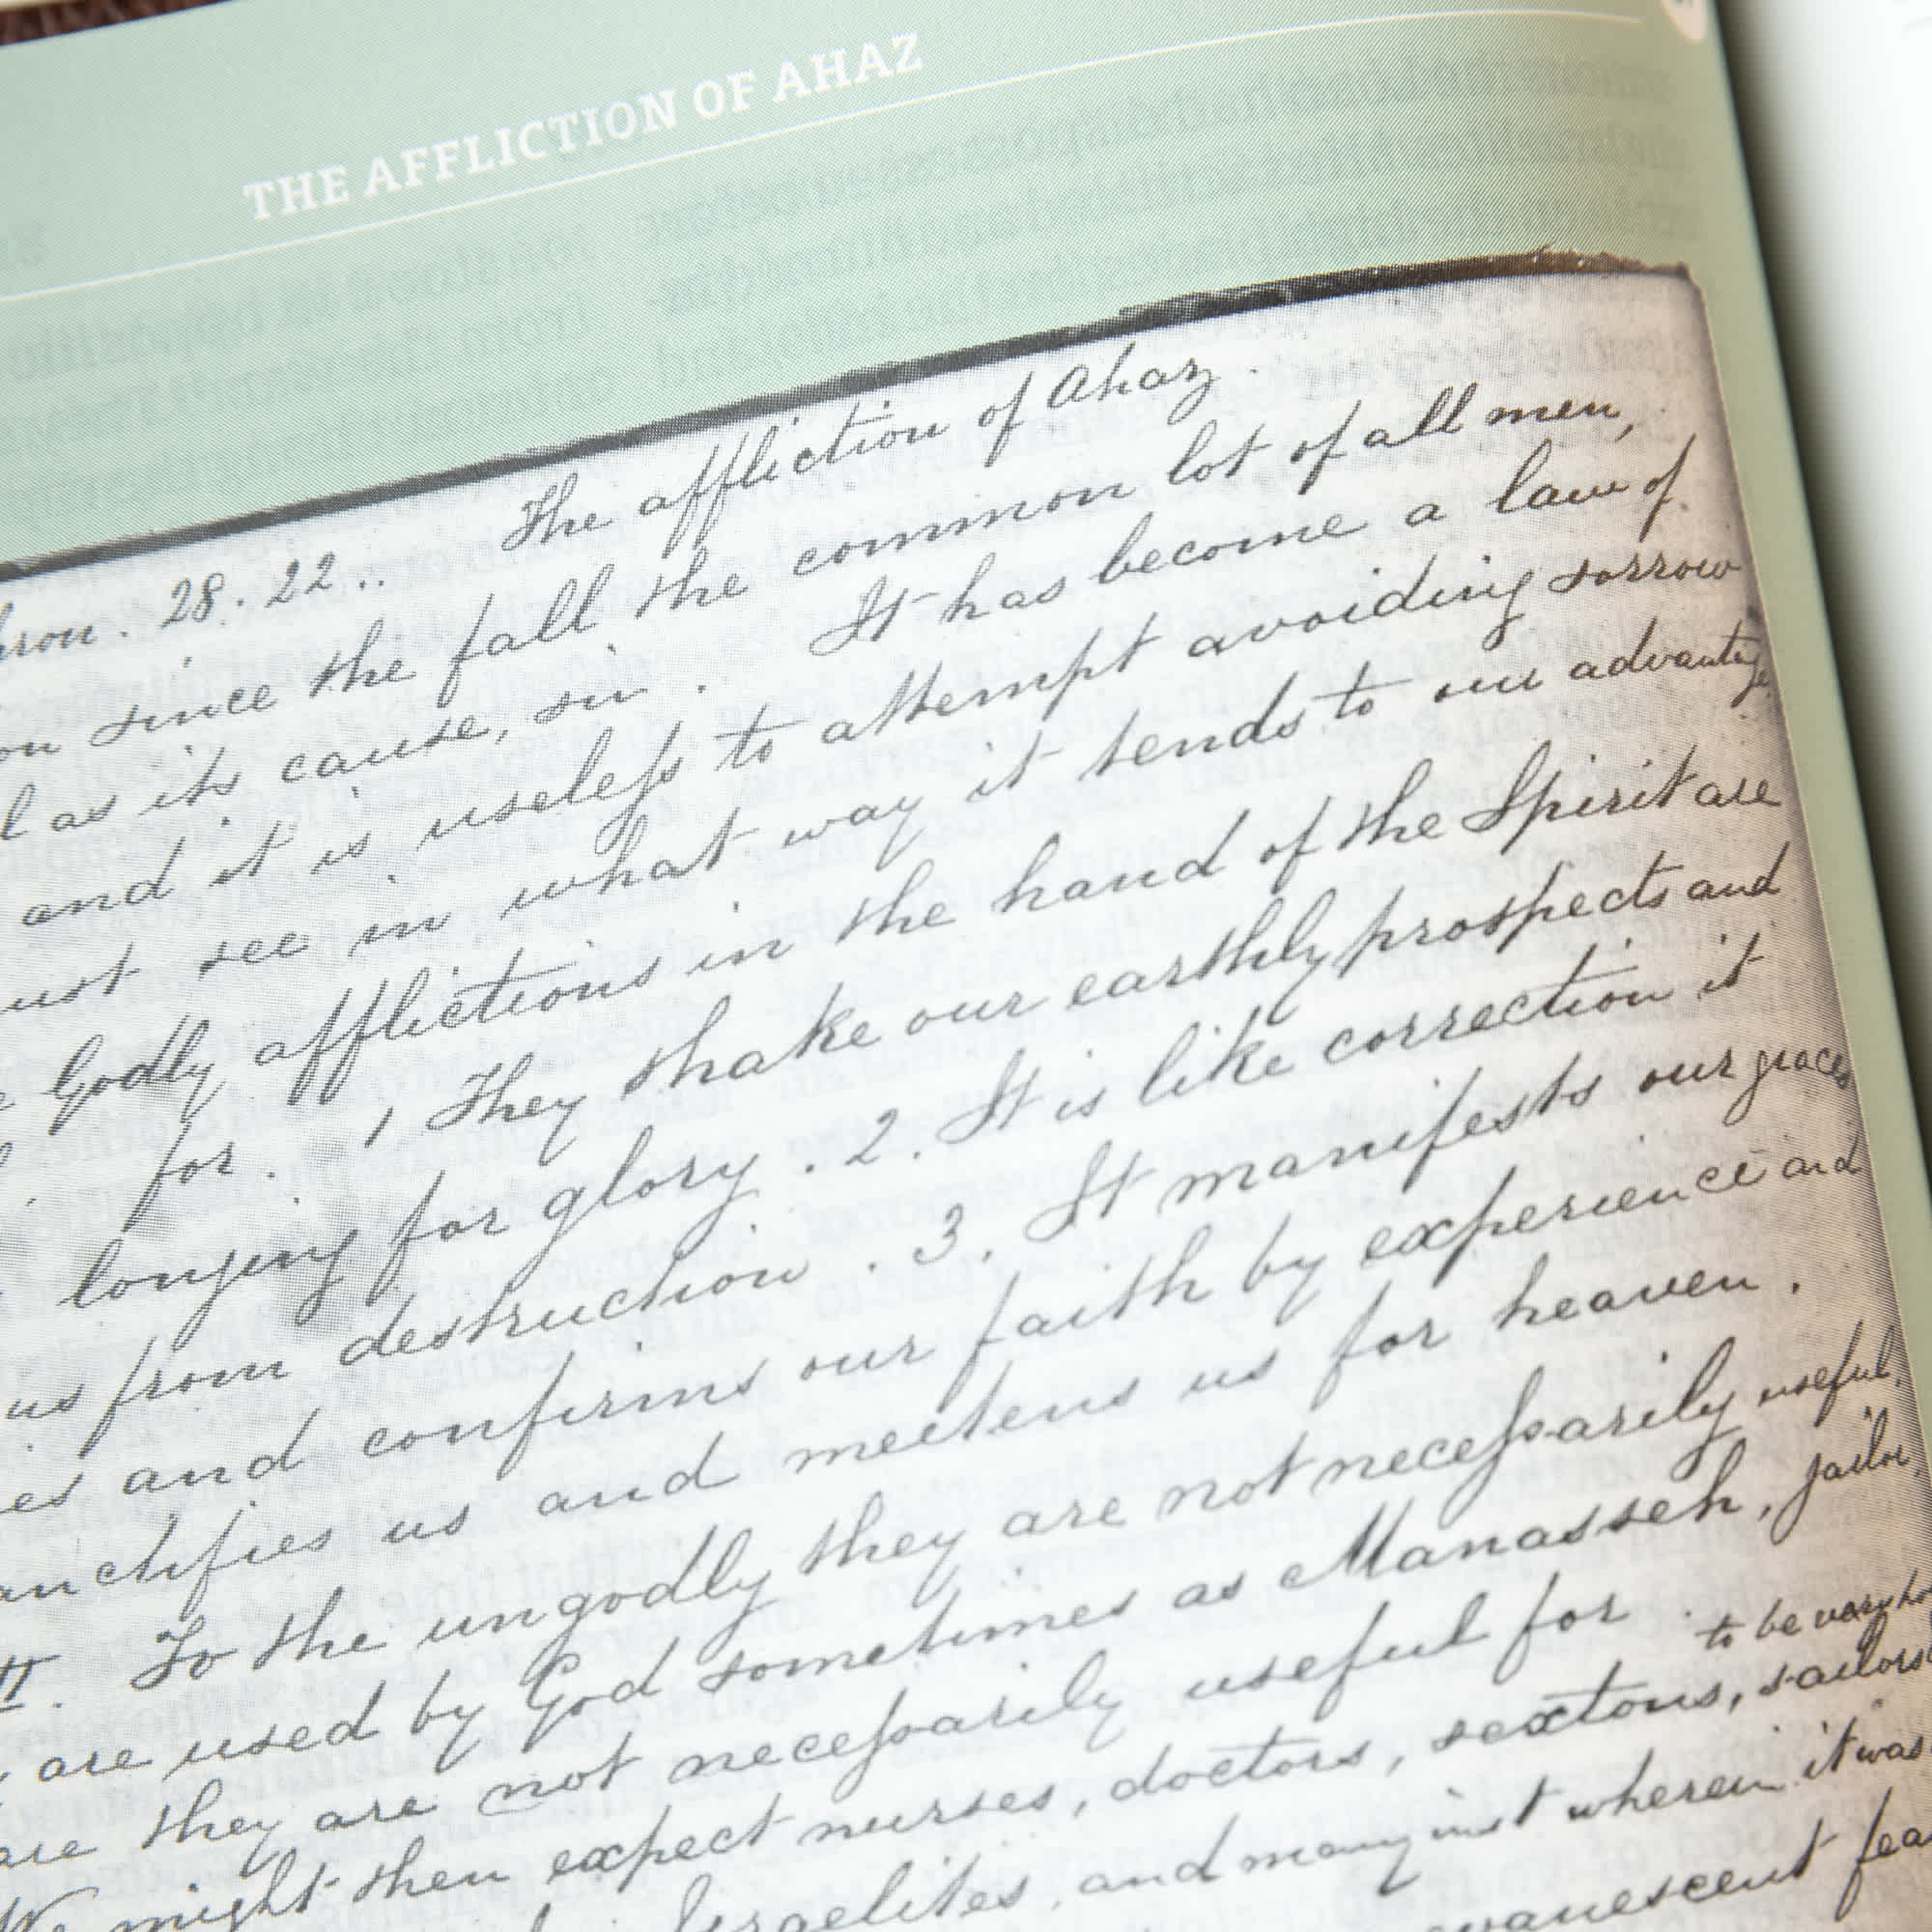 THE AFFLICTION OF AHAZ
hron. 28. 22.. The affliction of Ahaz.
on since the fall the common lot of all men,
l as its cause, sin. It has become a law of
and it is useless to attempt avoiding sorrow
ust see in what way it tends to our advantage
Godly afflictions in the hand of the Spirit are
for. 1 They shake our earthly prospects and
longing for glory. 2. It is like correction it
us from destruction. 3. It manifests our graces
es and confirms our faith by experience and
anctifies us and meetens us for heaven.
II. To the ungodly they are not necessarily useful.
are used by God sometimes as Manasseh, jailor,
are they are not necessarily useful for
We might then expect nurses, doctors, sextons, sailors to be very ho
Israelites, and many inst wherein it was
evanescent fea